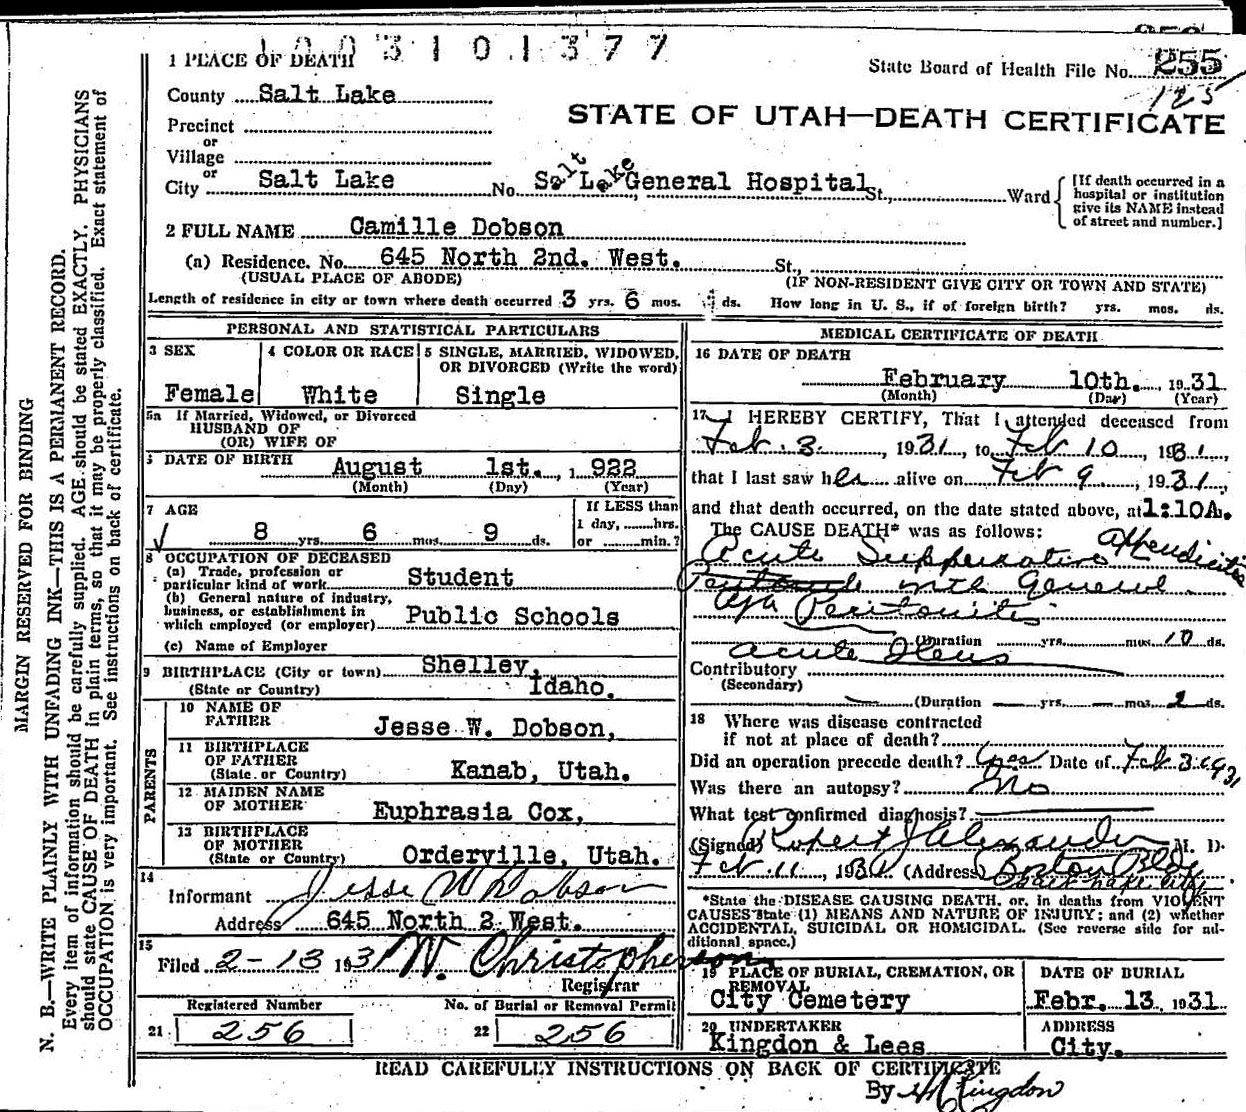 1003101377
1 PLACE OF DEATH
State Board of Health File No. 255
125
County Salt Lake
STATE OF UTAH—DEATH CERTIFICATE
Precinct
or
Village
or
City Salt Lake No. Salt Lake General Hospital St., Ward
[If death occurred in a hospital or institution give its NAME instead of street and number.]
2 FULL NAME Camille Dobson
(a) Residence. No. 645 North 2nd. West. St.,
(USUAL PLACE OF ABODE) (IF NON-RESIDENT GIVE CITY OR TOWN AND STATE)
Length of residence in city or town where death occurred 3 yrs. 6 mos. ds. How long in U. S., if of foreign birth? yrs. mos. ds.
PERSONAL AND STATISTICAL PARTICULARS
3 SEX 4 COLOR OR RACE 5 SINGLE, MARRIED, WIDOWED,
OR DIVORCED (Write the word)
Female White Single
5a If Married, Widowed, or Divorced
HUSBAND OF
(OR) WIFE OF
DATE OF BIRTH August 1st., 1922
(Month) (Day) (Year)
7 AGE If LESS than
1 day, hrs.
8 yrs. 6 mos. 9 ds. or min.?
8 OCCUPATION OF DECEASED
(a) Trade, profession or
particular kind of work Student
(b) General nature of industry,
business, or establishment in
which employed (or employer) Public Schools
(c) Name of Employer
9 BIRTHPLACE (City or town) Shelley,
(State or Country) Idaho.
PARENTS
10 NAME OF
FATHER Jesse W. Dobson,
11 BIRTHPLACE
OF FATHER
(State or Country) Kanab, Utah.
12 MAIDEN NAME
OF MOTHER Euphrasia Cox,
13 BIRTHPLACE
OF MOTHER
(State or Country) Orderville, Utah.
14
Informant Jesse W Dobson
Address 645 North 2 West.
15
Filed 2-13 1931 W. Christopherson
Registrar
Registered Number No. of Burial or Removal Permit
21 256 22 256
MEDICAL CERTIFICATE OF DEATH
16 DATE OF DEATH
February 10th., 1931
(Month) (Day) (Year)
17 I HEREBY CERTIFY, That I attended deceased from
Feb. 3, 1931, to Feb 10, 1931,
that I last saw her alive on Feb 9, 1931,
and that death occurred, on the date stated above, at 1:10A.
The CAUSE DEATH* was as follows:
Acute Suppurative Appendicitis
with General
Peritonitis
(Duration yrs. mos. 10 ds.
Acute Ileus
Contributory
(Secondary)
(Duration yrs. mos. 2 ds.
18 Where was disease contracted
if not at place of death?
Did an operation precede death? yes Date of Feb 3 1931
Was there an autopsy? No
What test confirmed diagnosis?
(Signed) Rupert J Alexander M. D.
Feb. 11, 1931 (Address) Boston Bldg
Salt Lake City
*State the DISEASE CAUSING DEATH, or, in deaths from VIOLENT
CAUSES state (1) MEANS AND NATURE OF INJURY; and (2) whether
ACCIDENTAL, SUICIDAL OR HOMICIDAL. (See reverse side for additional space.)
19 PLACE OF BURIAL, CREMATION, OR REMOVAL DATE OF BURIAL
City Cemetery Febr. 13, 1931
20 UNDERTAKER ADDRESS
Kingdon & Lees City.
READ CAREFULLY INSTRUCTIONS ON BACK OF CERTIFICATE
By Kingdon
MARGIN RESERVED FOR BINDING
N. B.—WRITE PLAINLY WITH UNFADING INK—THIS IS A PERMANENT RECORD.
Every item of information should be carefully supplied. AGE should be stated EXACTLY. PHYSICIANS
should state CAUSE OF DEATH in plain terms, so that it may be properly classified. Exact statement of
OCCUPATION is very important. See instructions on back of certificate.